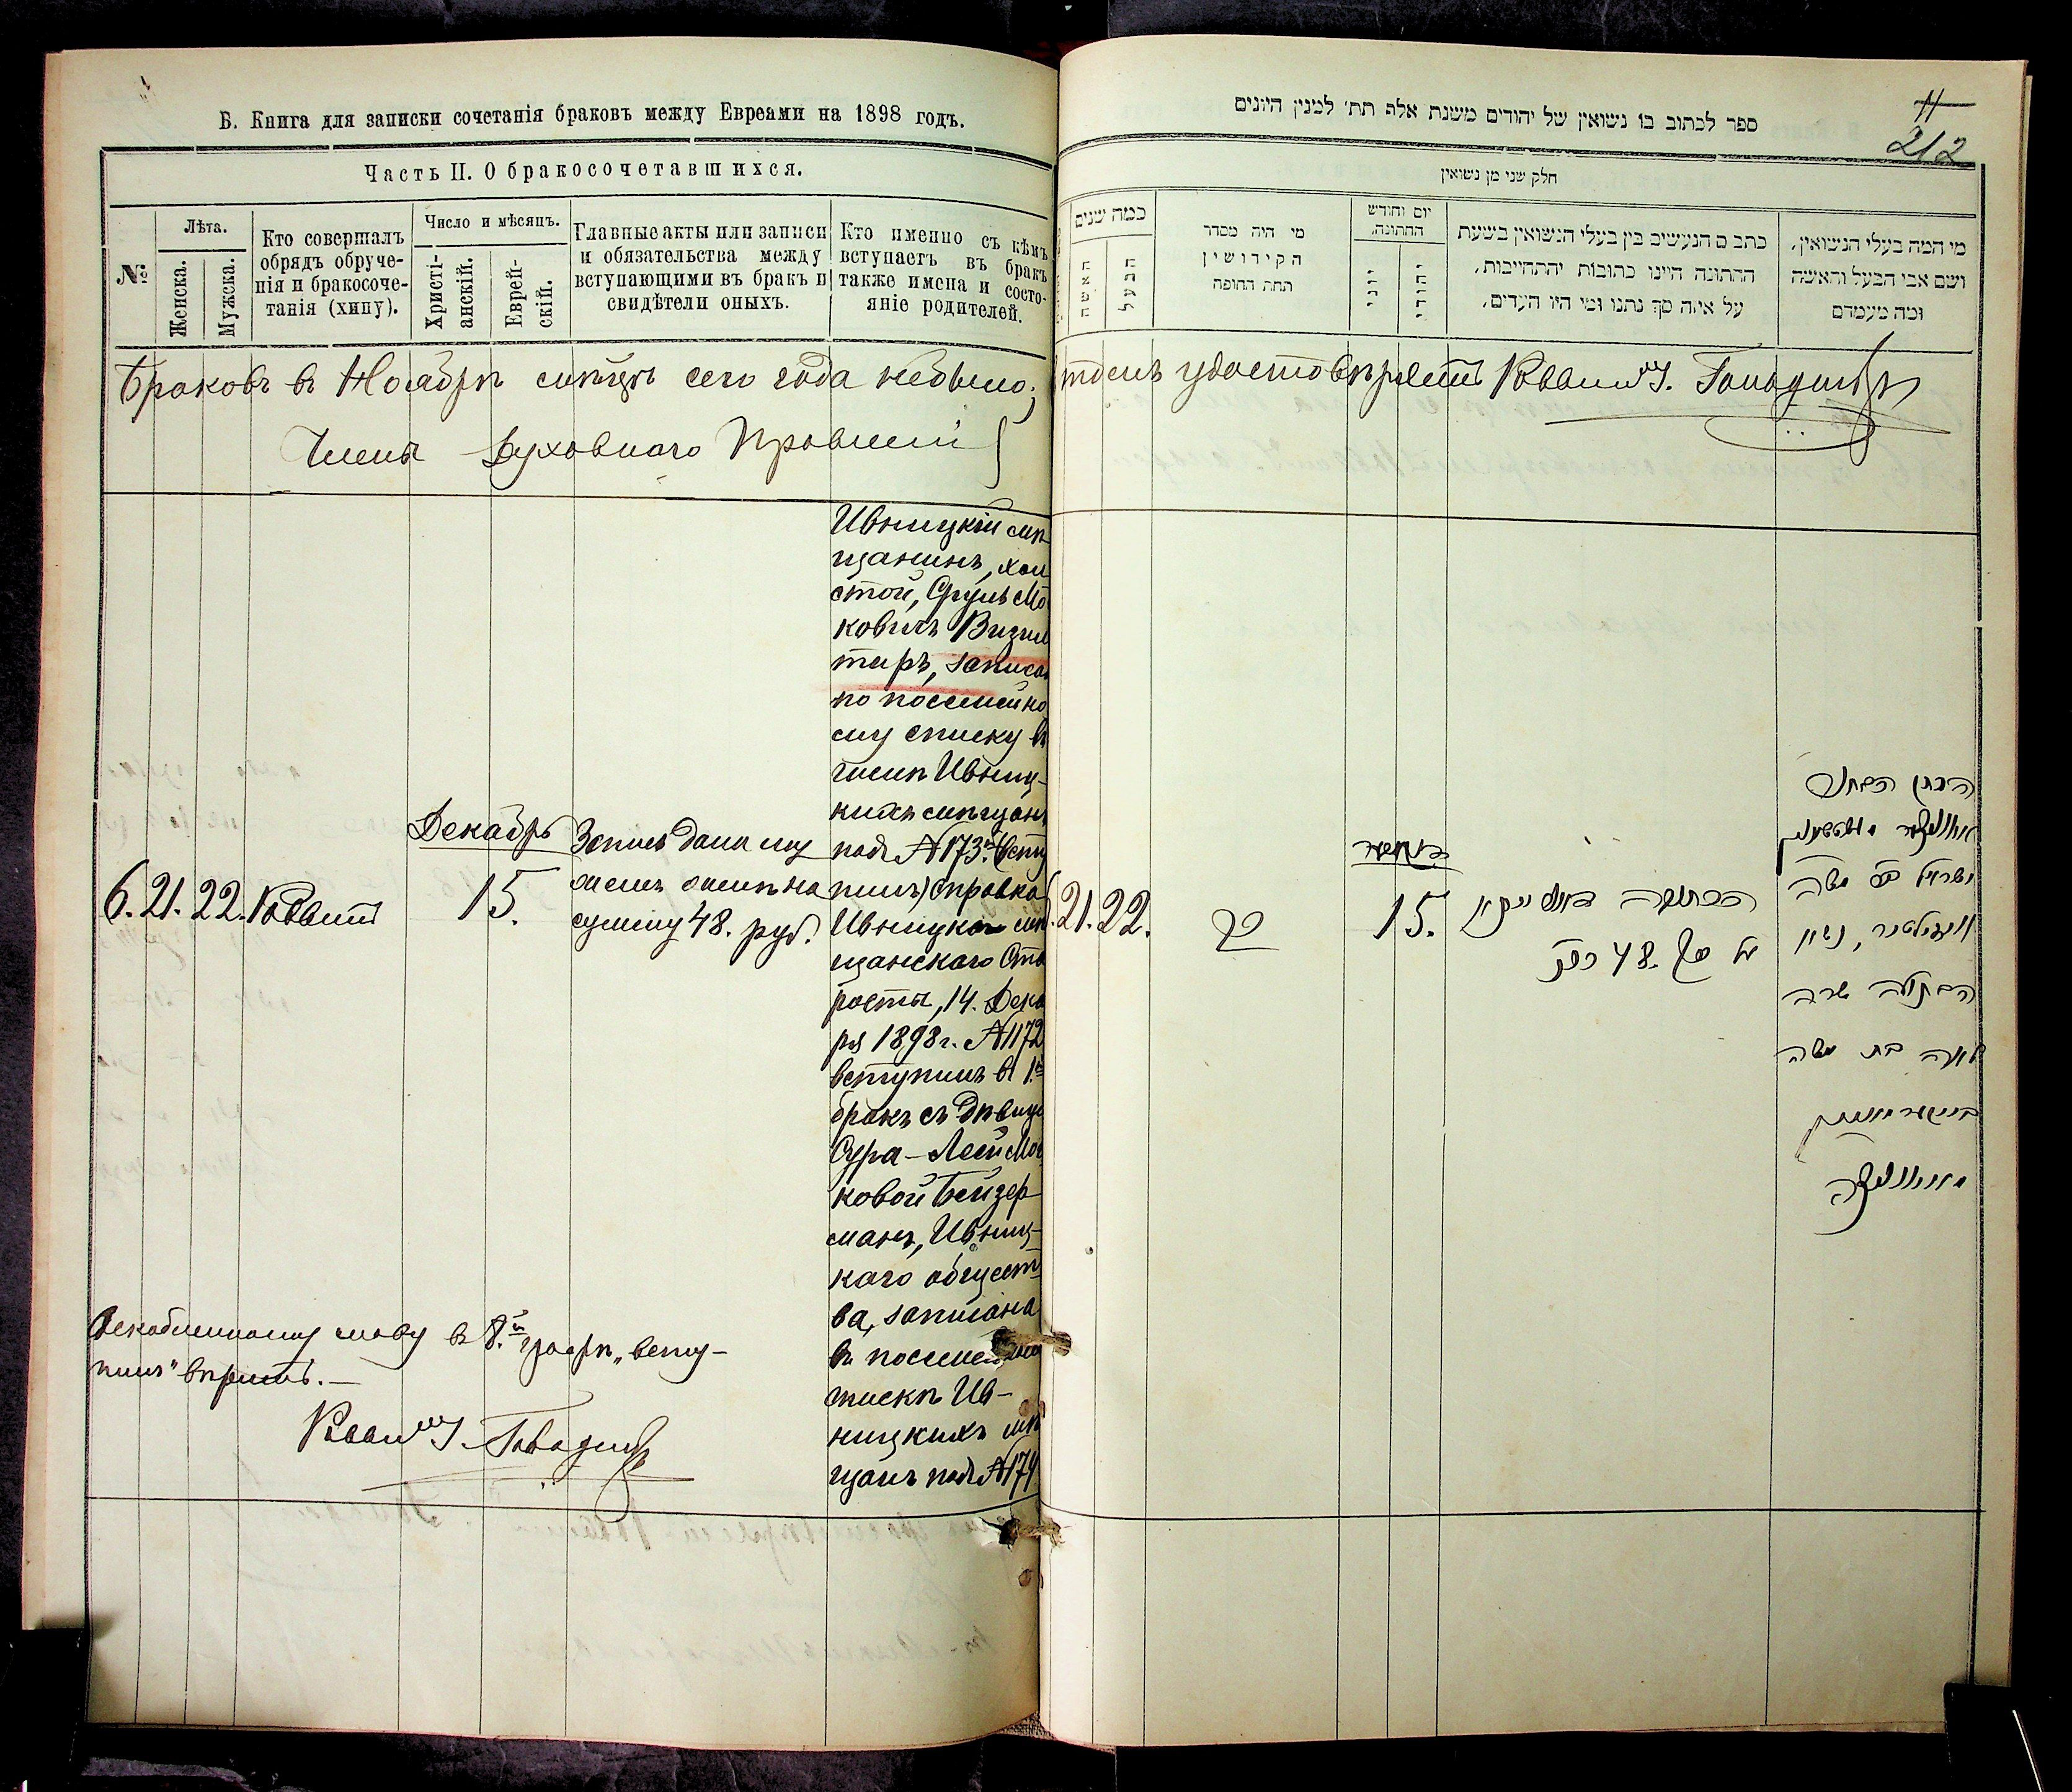 Б. Книга для записки сочетанія браковъ между Евреами на 1898 годъ.
Часть II. О бракосочетавшихся.
№
Лѣта.
Женска.
Мужска.
Кто совершалъ
обрядъ обруче-
нія и бракосоче-
танія (хипу).
Число и мѣсяцъ.
Христі-
анскій.
Еврей-
скій.
Главные акты или записи
и обязательства между
вступающими въ бракъ и
свидѣтели оныхъ.
Кто именно съ кѣмъ
вступаетъ въ бракъ
также имена и состо-
яніе родителей.
Браковъ въ Ноябрѣ мѣсяцѣ сего года небыло;
Члены Духовнаго Правленія
Декабрь
6. 21. 22. Раввинъ
15.
Запись дана
сумму 48. руб.
Ивницкій мѣ-
щанинъ, хол
стой, Сруль Мо
ковичъ Визил
теръ, записан
по посемейно
му списку въ
числѣ Ивниц-
кихъ мѣщанъ
подъ № 173
справка
Ивницкаго мѣ
щанскаго Ста
росты, 14. Дека
ря 1898 г. № 1172
вступилъ въ 1й
бракъ съ дѣвицей
Сура-Леей Мос
ковой Бейдер
манъ, Ивниц-
каго общест
ва, записана
въ посемейно
спискѣ Ив-
ницкихъ мѣ
щанъ подъ № 174
слову въ 8й графѣ „всту-
пилъ" вѣрить.—
Раввинъ
ספר לכתוב בו נשואין של יהודים משנת אלף תת׳ למנין היונים
11
212
חלק שני מן נשואין
כמה שנים
האשה
הבעל
מי היה מסדר
הקידושין
תחת החופה
יום וחודש
החתונה,
יוני
יהודי
כתבים הנעשים בין בעלי הנשואין בשעת
החתונה היינו כתובות והתחייבות,
על איזה סך נתנו ומי היו העדים,
מי המה בעלי הנשואין,
ושם אבי הבעל והאשה
ומה מעמדם
удостовѣряетъ Раввинъ
21. 22.
רב
15.
הכתובה
על סך 48 רו״כ
ישראל בן משה
נשוי
הבתולה שרה
לאה בת משה